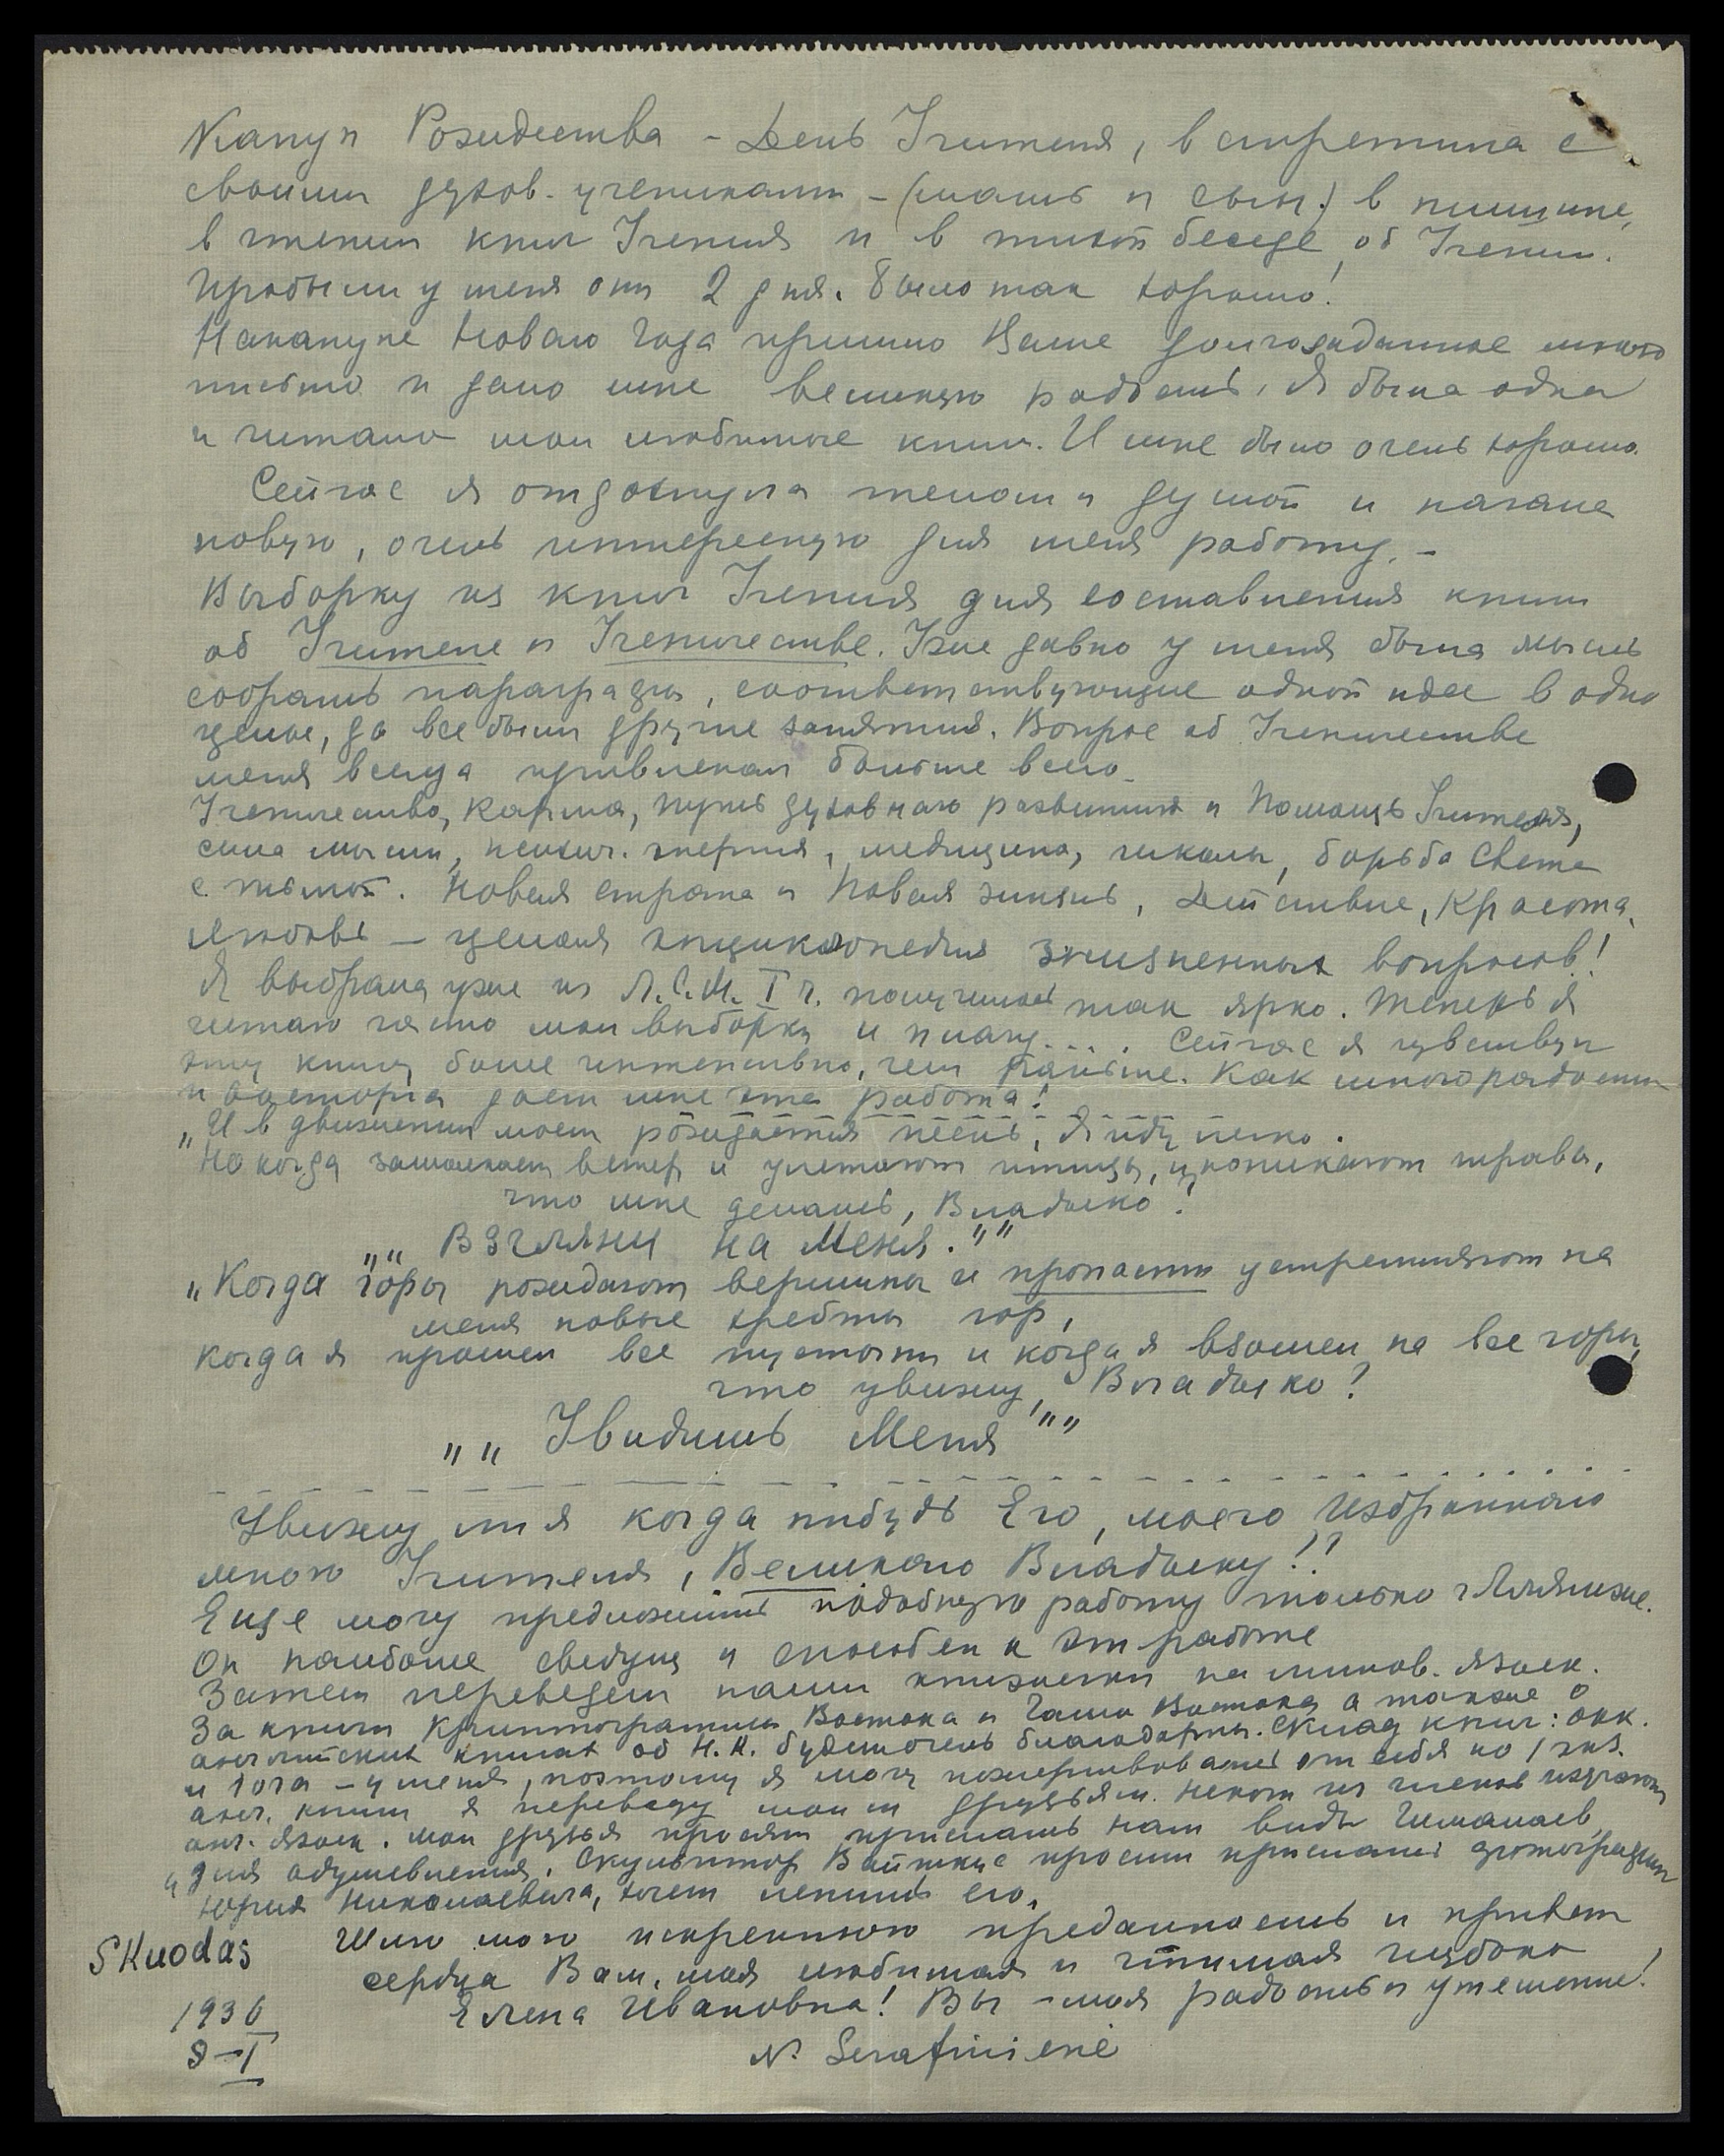 Канун Рождества – День Учителя, встретила с
своими духов. учениками – (мать и сын) в тишине,
в чтении книг Учения и в тихой беседе об Учении.
Пробыли у меня они 2 дня. Было так хорошо!
Накануне Нового Года пришло Ваше долгожданное мною
письмо и дало мне великую радость. Я была одна
и читала мои любимые книги. И мне было очень хорошо.
Сейчас я отдохнула телом и душой и начала
новую, очень интересную для меня работу. –
Выборку из книг Учения для составления книги
об Учителе и Ученичестве. Уже давно у меня была мысль
собрать параграфы, соответствующие одной идее в одно
целое, да все были другие занятия. Вопрос об Ученичестве
меня всегда привлекал больше всего.
Ученичество, Карма, Путь духовного развития и Помощь Учителя,
сила мысли, психич. энергия, медицина, школы, борьба Света
с тьмой. Новая страна и Новая жизнь, Действие, Красота,
Любовь – целая энциклопедия жизненных вопросов!
Я выбрала уже из Л.С.М. I ч. получилось так ярко. Теперь я
читаю часто мои выборки и плачу.... Сейчас я чувствую
эту книгу более интенсивно, чем раньше. Как много радости
и восторга дает мне эта работа!
„И в движении моем рождается песнь, я иду легко.
Но когда замолкает ветер и улетают птицы, и поникают травы,
что мне делать, Владыко?
„„ Взгляни на Меня.""
„Когда горы рождают вершины и пропасти устремляют на
меня новые хребты гор,
когда я прошел все пустыни и когда я взошел на все горы,
что увижу, Владыко?
„„ Увидишь Меня""
Увижу ли я когда нибудь Его, моего Избранного
мною Учителя, Великого Владыку!?
Еще могу предложить подобную работу только г Лялянже.
Он наиболее сведущ и способен к эт работе
Затем переведем наши книжечки на литов. язык.
За книги Криптограммы Востока и Чаша Востока, а также о
английских книгах об Н.К. будем очень благодарны. Склад книг: Окк.
и Йога – у меня, поэтому я могу пожертвовать от себя по 1 экз.
англ. книги я переведу моим друзьям. Некот из членов изучают
анг. язык. Мои друзья просят прислать нам виды Гималаев
и для одушевления. Скульптор Вайткус просит прислать фотографии
Юрия Николаевича, хочет лепить его.
Шлю мою искреннюю преданность и привет
сердца Вам, моя любимая и чтимая глубоко
Елена Ивановна! Вы – моя радость и утешение!
N. Serafinienė
Skuodas
1936
8–I